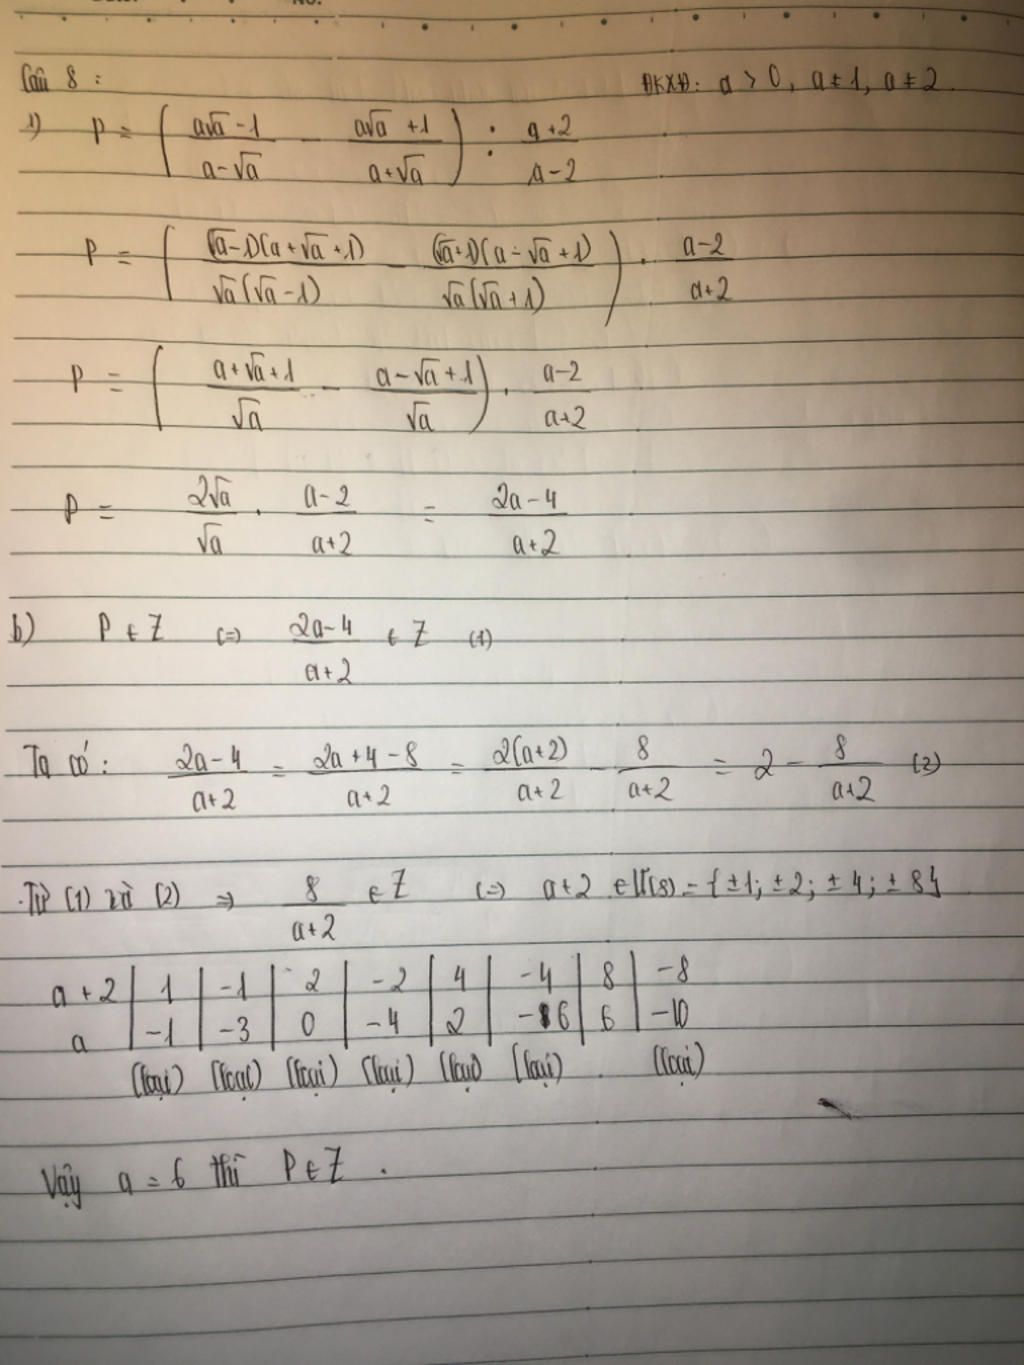 Câu 8 : ĐKXĐ: a > 0, a ≠ 1, a ≠ 2
1) P = ( (a√a - 1)/(a - √a) - (a√a + 1)/(a + √a) ) : (a + 2)/(a - 2)
P = ( (√a - 1)(a + √a + 1)/(√a(√a - 1)) - (√a + 1)(a - √a + 1)/(√a(√a + 1)) ) . (a - 2)/(a + 2)
P = ( (a + √a + 1)/√a - (a - √a + 1)/√a ) . (a - 2)/(a + 2)
P = 2√a/√a . (a - 2)/(a + 2) = (2a - 4)/(a + 2)
b) P ∈ Z (=) (2a - 4)/(a + 2) ∈ Z (1)
Ta có : (2a - 4)/(a + 2) = (2a + 4 - 8)/(a + 2) = 2(a + 2)/(a + 2) - 8/(a + 2) = 2 - 8/(a + 2) (2)
Từ (1) và (2) => 8/(a + 2) ∈ Z (=) a + 2 ∈ Ư(8) = { ±1; ±2; ±4; ±8}
a + 2 | 1 | -1 | 2 | -2 | 4 | -4 | 8 | -8
a | -1 | -3 | 0 | -4 | 2 | -6 | 6 | -10
(loại) (loại) (loại) (loại) (loại) (loại) (loại)
Vậy a = 6 thì P ∈ Z .